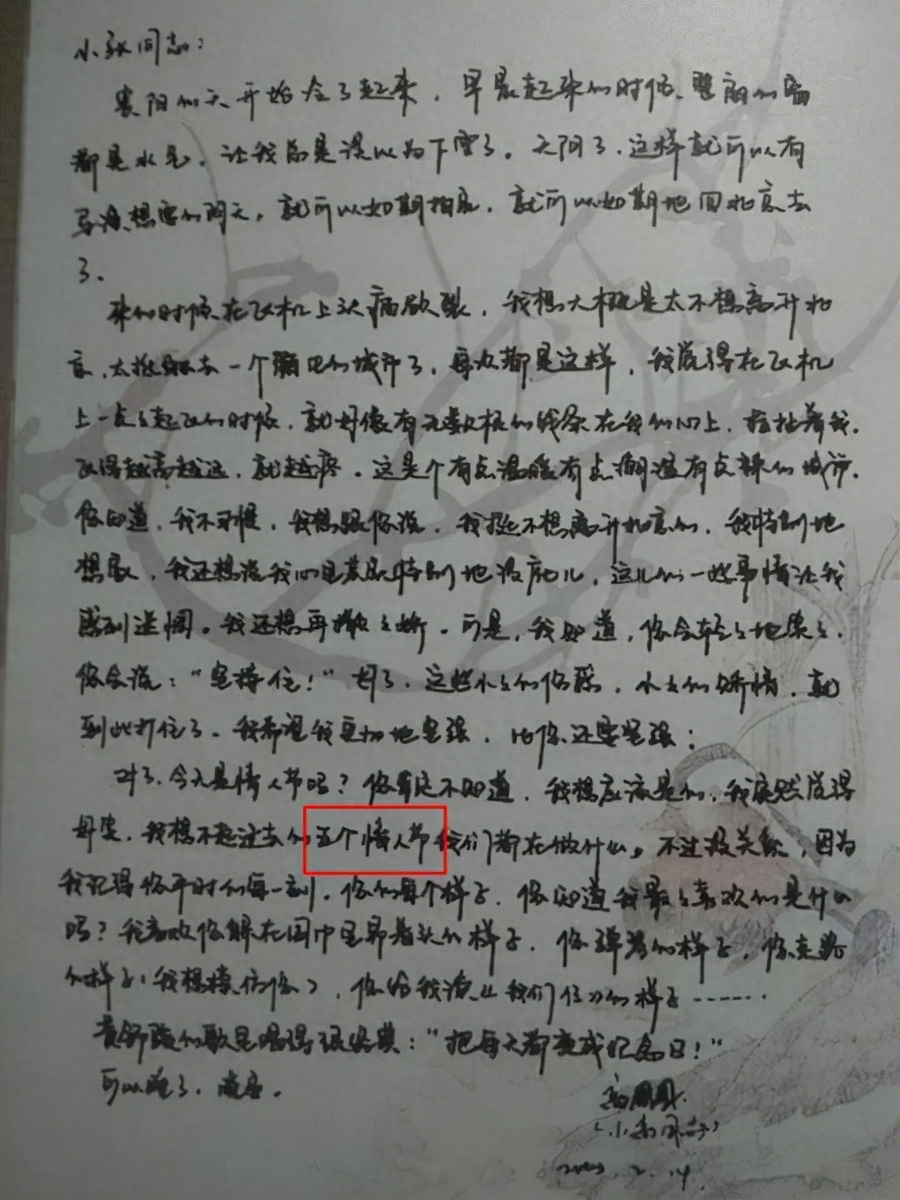 小张同志：
贵阳的天开始冷了起来，早晨起来的时候，整扇的窗
都是水汽，让我总是误以为下雪了。天阴了，这样就可以有
导演想要的阴天，就可以如期拍戏，就可以如期地回北京去
了。
来的时候在飞机上头痛欲裂，我想大概是太不想离开北
京，太抵触去一个陌生的城市了，每次都是这样，我觉得在飞机
上一点点起飞的时候，就好像有无数根的线条在我的心上，拉扯着我，
飞得越高越远，就越疼。这是个有点温暖有点潮湿有点辣的城市，
你知道，我不习惯，我想跟你说，我挺不想离开北京的，我特别地
想家，我还想说我心里其实特别地没底儿，这儿的一些事情让我
感到迷惘。我还想再撒撒娇。可是，我知道，你会轻轻地笑笑，
你会说：“坚持住！”好了，这些小小的伤感，小小的矫情，就
到此打住了。我希望我更加地坚强，比你还要坚强；
对了，今天是情人节吗？你肯定不知道，我想应该是的，我突然觉得
好笑，我想不起过去的五个情人节我们都在做什么，不过没关系，因为
我记得你平时的每一刻，你的每个样子，你知道我最最喜欢的是什么
吗？我喜欢你躺在围巾里昂着头的样子，你弹琴的样子，你走路
的样子（我想模仿你），你给我读《我们仨》的样子……
黄舒骏的歌里唱得很好哦：“把每天都变成纪念日！”
可以睡了，晚安。
高圆圆
（小高同志）
2.14